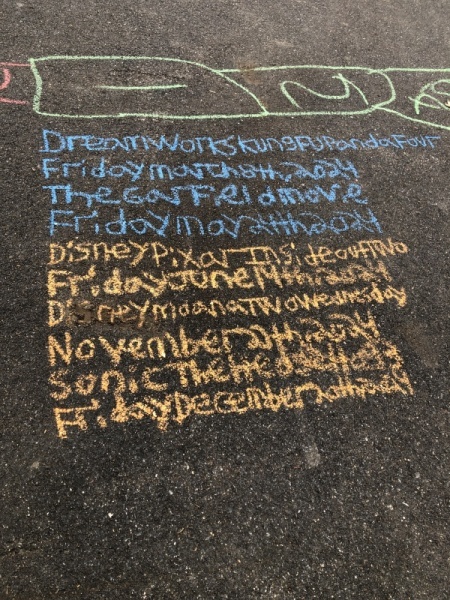 DreamWorksKungFuPandaFour
Fridaymarch8th,2024
TheGarFieldmovie
Fridaymay24th2024
DisneyPixarInsideoutTwo
FridayJune14th,2024
DisneymoanaTwoWednesday
November2024
SonicTheHedgehog3
FridayDecember20th2024